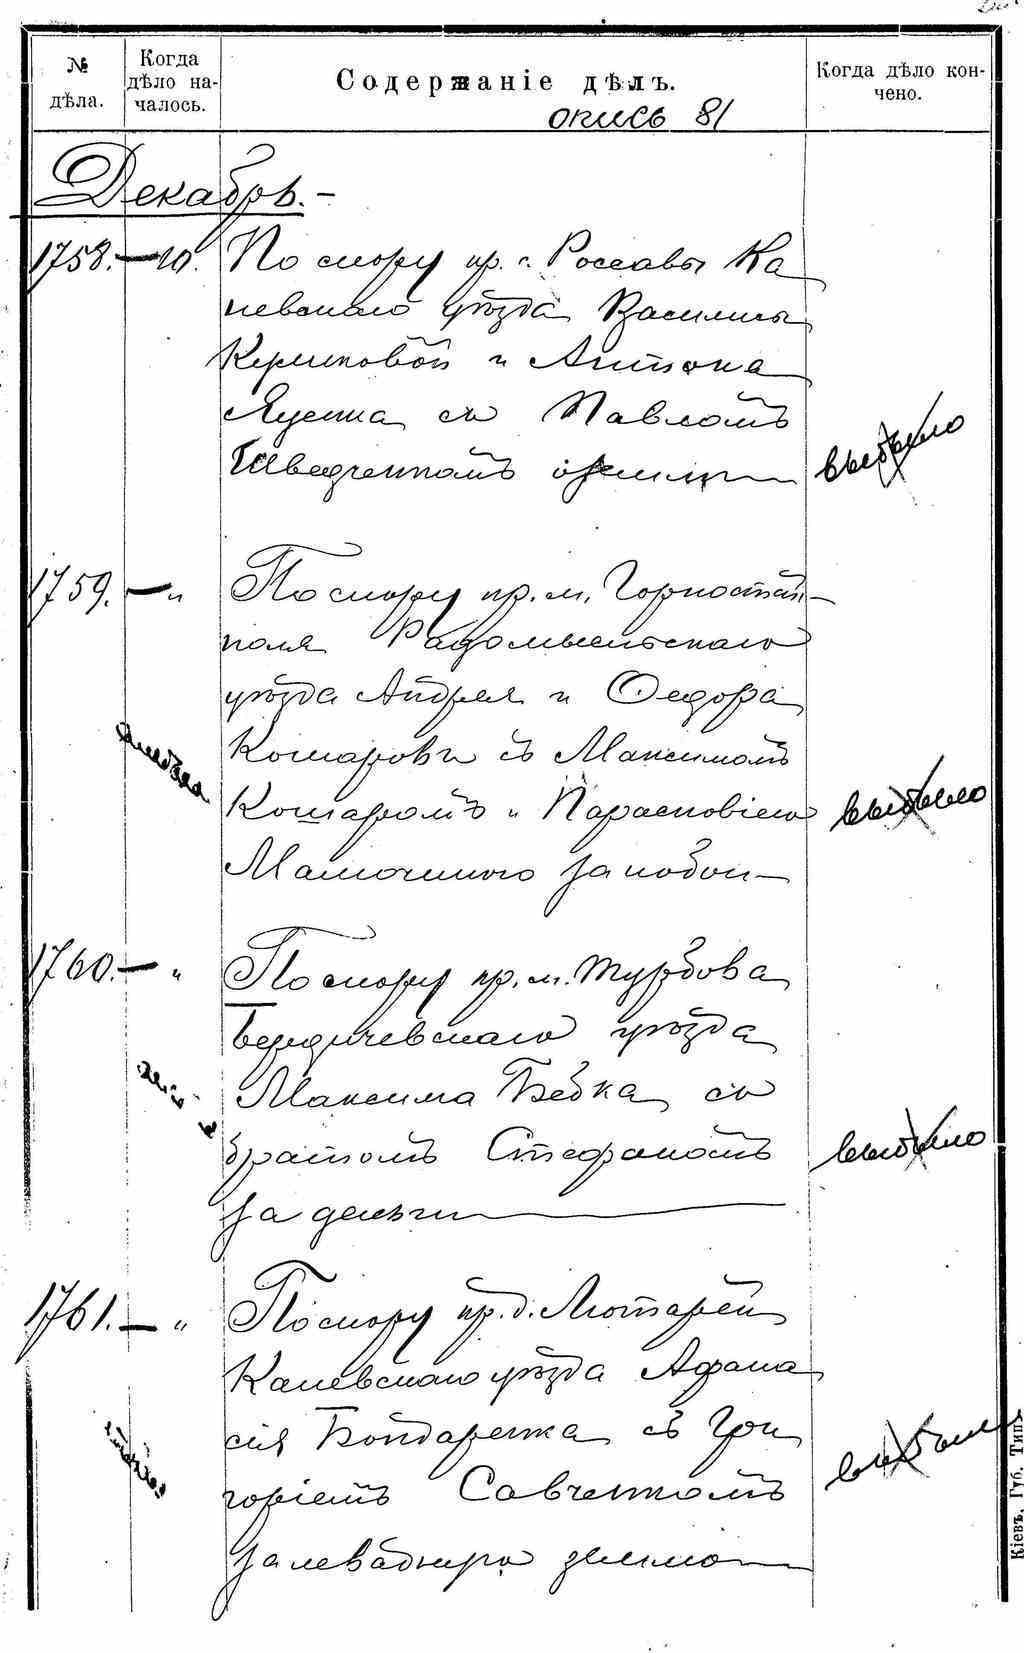 № дѣла.
Когда дѣло началось.
Содержаніе дѣлъ.
Когда дѣло кончено.
опись 81
Декабрь.-
1758.-10. По спору кр. с. Россавы Ка
невскаго уѣзда Василисы
и Антона
Яценка съ Павломъ
Шведченкомъ о земли
выбыло
1759.-" По спору кр. м. Горностай-
поля Радомысльскаго
уѣзда Андрея и Ѳедора
Кошаровъ съ Максимомъ
Кошаромъ и Парасковіею
за побои-
выбыло
1760.-" По спору кр. м. Турбова
Бердичевскаго уѣзда
Максима Бебка съ
братомъ Стефаномъ
за деньги
выбыло
1761.-" По спору кр. д. Лютарей
Каневскаго уѣзда Афана
сія Бондаренка съ Гри
горіемъ Савченкомъ
за левадную землю
выбыло
Кіевъ, Губ. Тип.